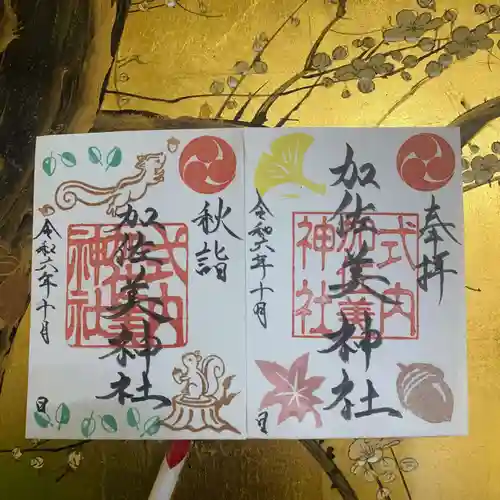 奉拝
加佐美神社
式内
加佐美
神社
令和六年十月
日
秋詣
加佐美神社
式内
加佐美
神社
令和六年十月
日